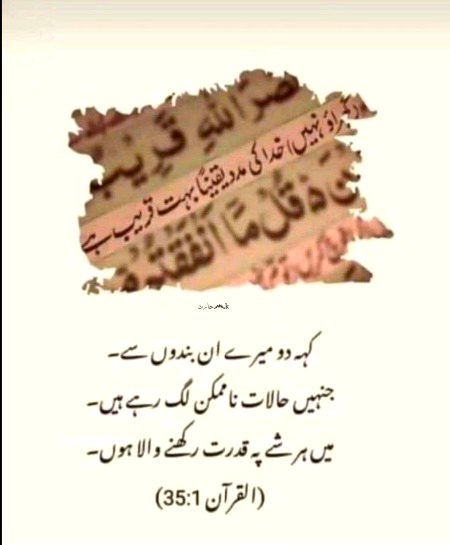 صْرَ اللّٰهِ قَرِيْبٌ
گھبراؤ نہیں) خدا کی مدد یقیناً بہت قریب ہے
قُلْ مَاۤ اَنْفَقْتُمْ
کہہ دو میرے ان بندوں سے۔
جنہیں حالات ناممکن لگ رہے ہیں۔
میں ہر شے پہ قدرت رکھنے والا ہوں۔
(القرآن 35:1)